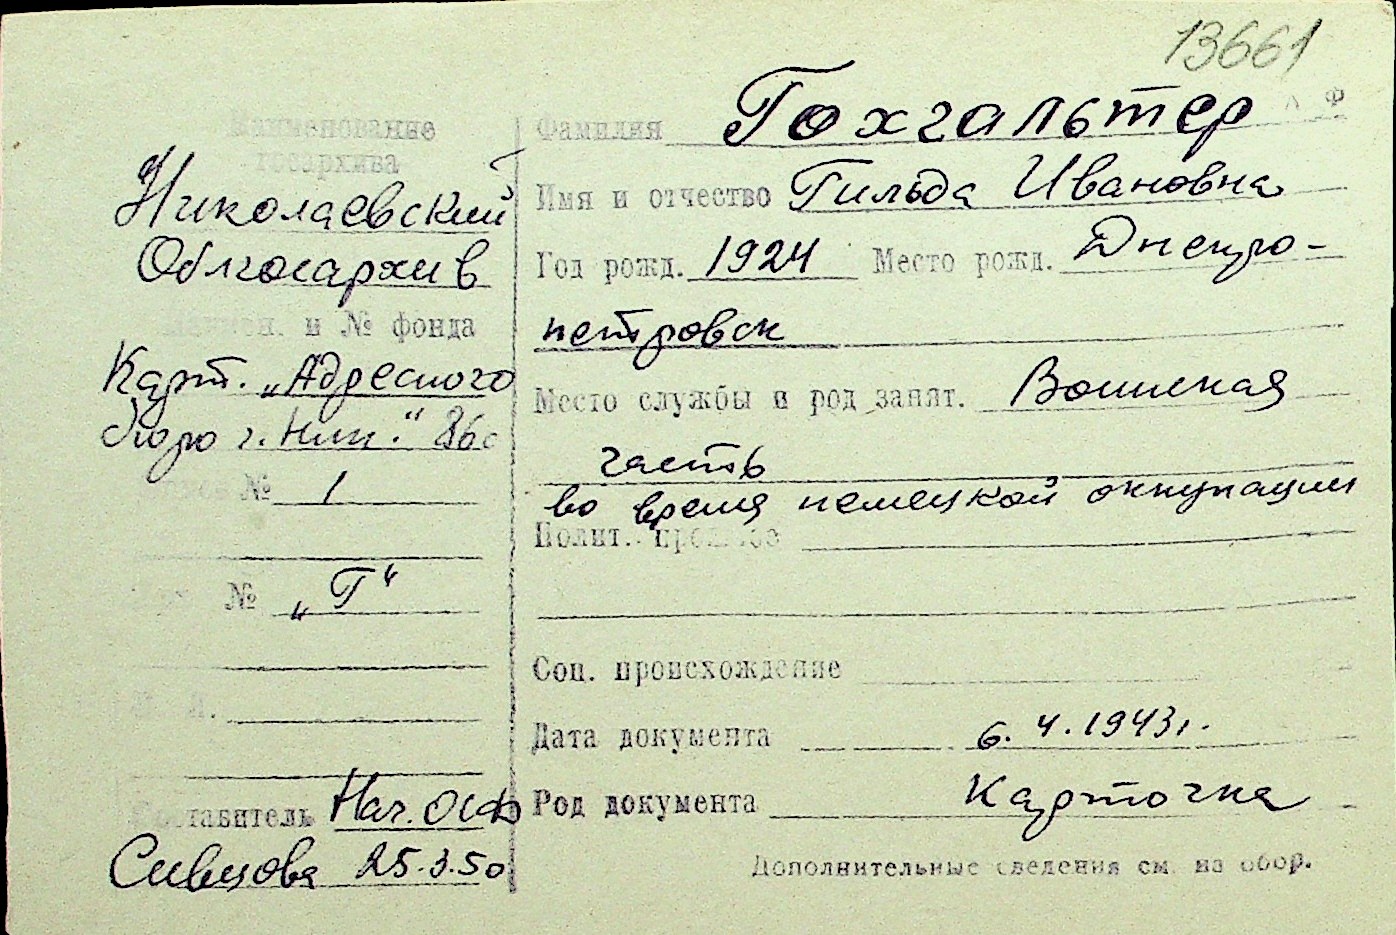 13661
Наименование
госархива
Николаевский
Облгосархив
Наимен. и № фонда
Карт. „Адресного
бюро г. Ник." 86с
Описи № 1
№ „Г"
Составитель Нач. ОСФ
Сивцова 25.3.50
Фамилия Гохгальтер
Имя и отчество Гильда Ивановна
Год рожд. 1924 Место рожд. Днепро-
петровск
Место службы и род занят. Воинская
часть
во время немецкой оккупации
Полит.
Соц. происхождение
Дата документа 6.4.1943г.
Род документа Карточка
Дополнительные сведения см. на обор.